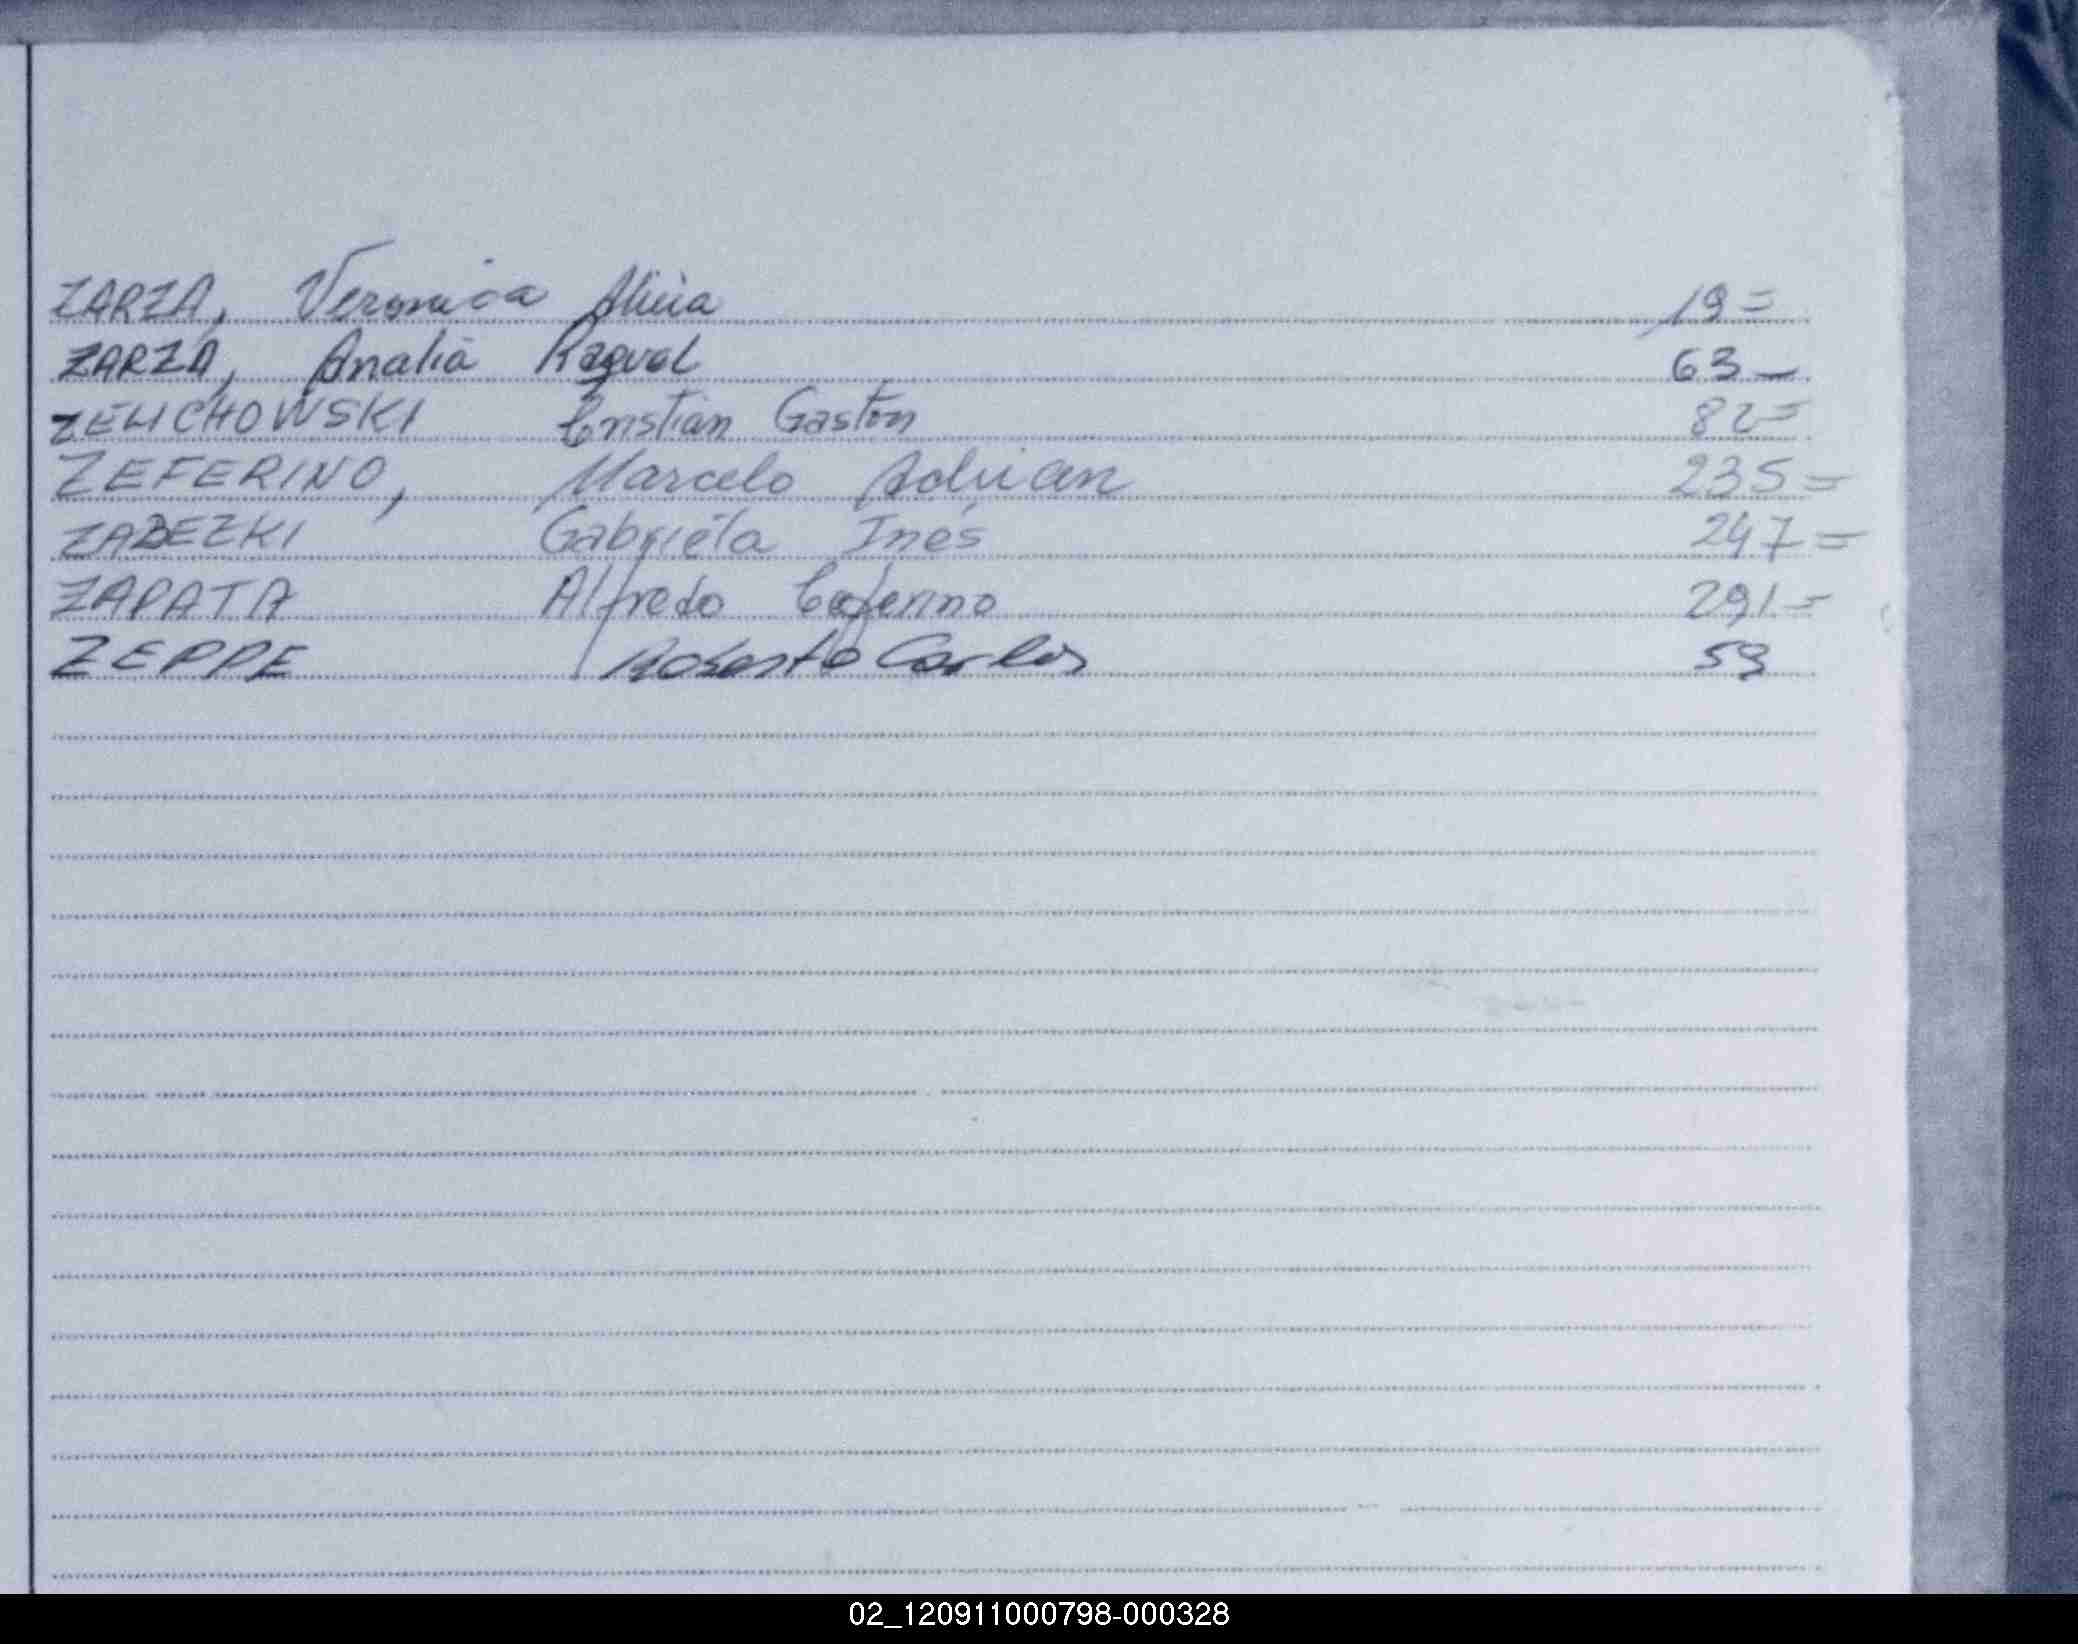 ZARZA, Veronica Alicia 19=
ZARZA, Analia Raquel 63—
ZELICHOWSKI Cristian Gaston 82=
ZEFERINO, Marcelo Adrian 235=
ZABEZKI Gabriela Inés 247=
ZAPATA Alfredo Ceferino 291=
ZEPPE Roberto Carlos 59
02_120911000798-000328